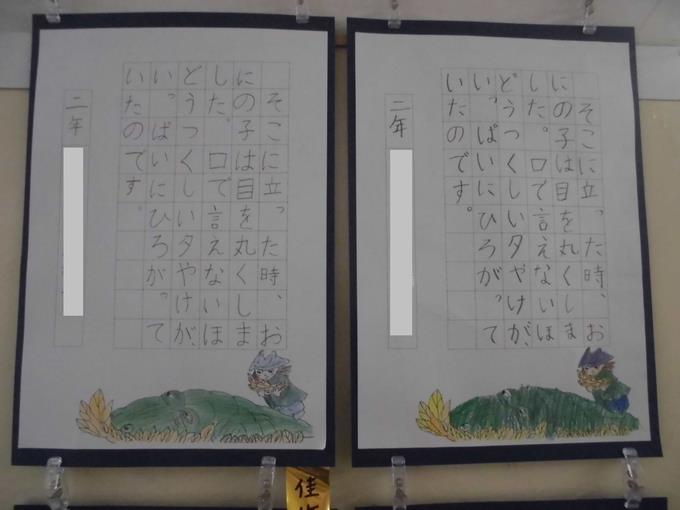 そこに立った時、お
にの子は目を丸くしま
した。口で言えないほ
どうつくしい夕やけが、
いっぱいにひろがって
いたのです。
二年
そこに立った時、お
にの子は目を丸くしま
した。口で言えないほ
どうつくしい夕やけが、
いっぱいにひろがって
いたのです。
二年
佳